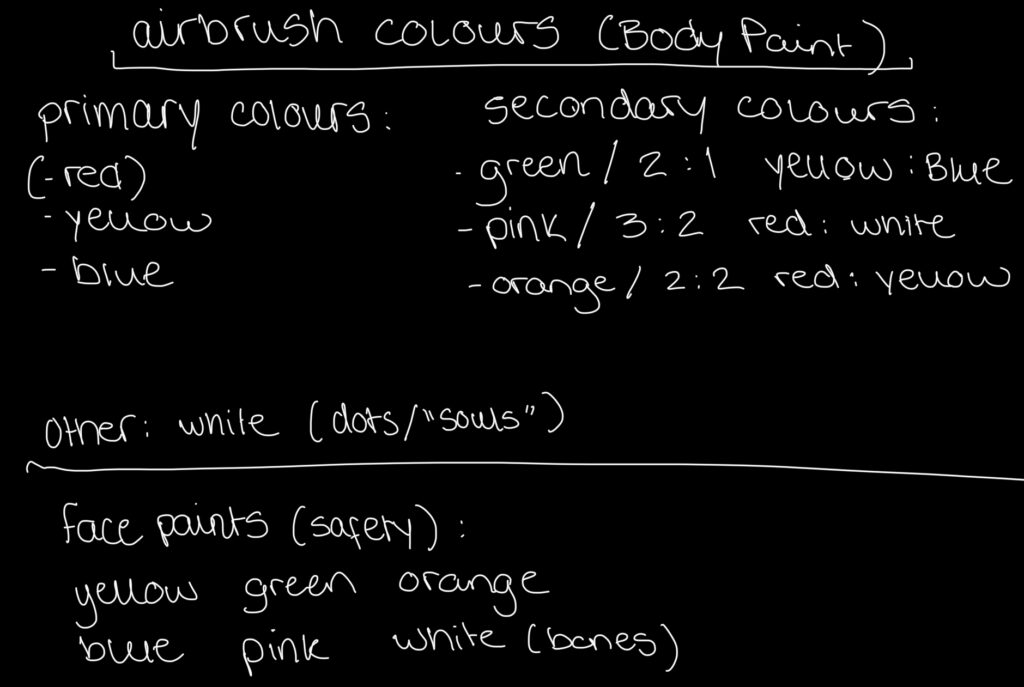 airbrush colours (Body Paint)
primary colours:
(-red)
- yellow
- blue
secondary colours:
- green / 2:1 yellow : Blue
- pink / 3:2 red : white
- orange / 2:2 red : yellow
Other: white (dots/"souls")
face paints (safety):
yellow green orange
blue pink white (bones)